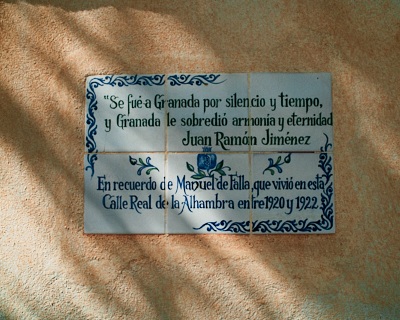 "Se fué a Granada por silencio y tiempo,
y Granada le sobredió armonía y eternidad
Juan Ramón Jiménez
En recuerdo de Manuel de Falla, que vivió en esta
Calle Real de la Alhambra entre 1920 y 1922.